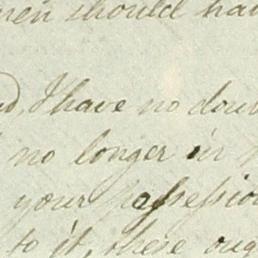 men should hav
I have no dou
no longer in
your possession
to it, these oug